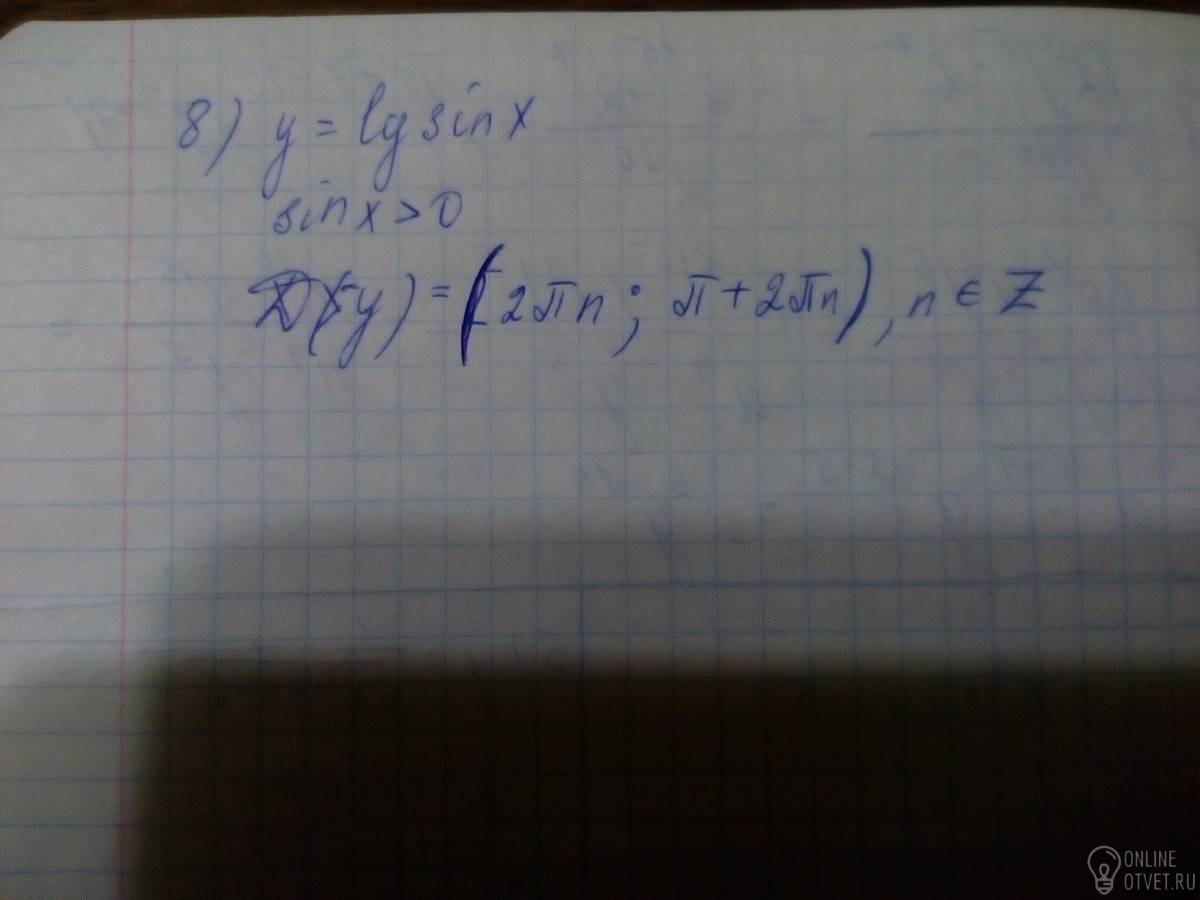 8) y = lg sin x
sin x > 0
D(y) = (2πn; π + 2πn), n ∈ Z
ONLINE
OTVET.RU